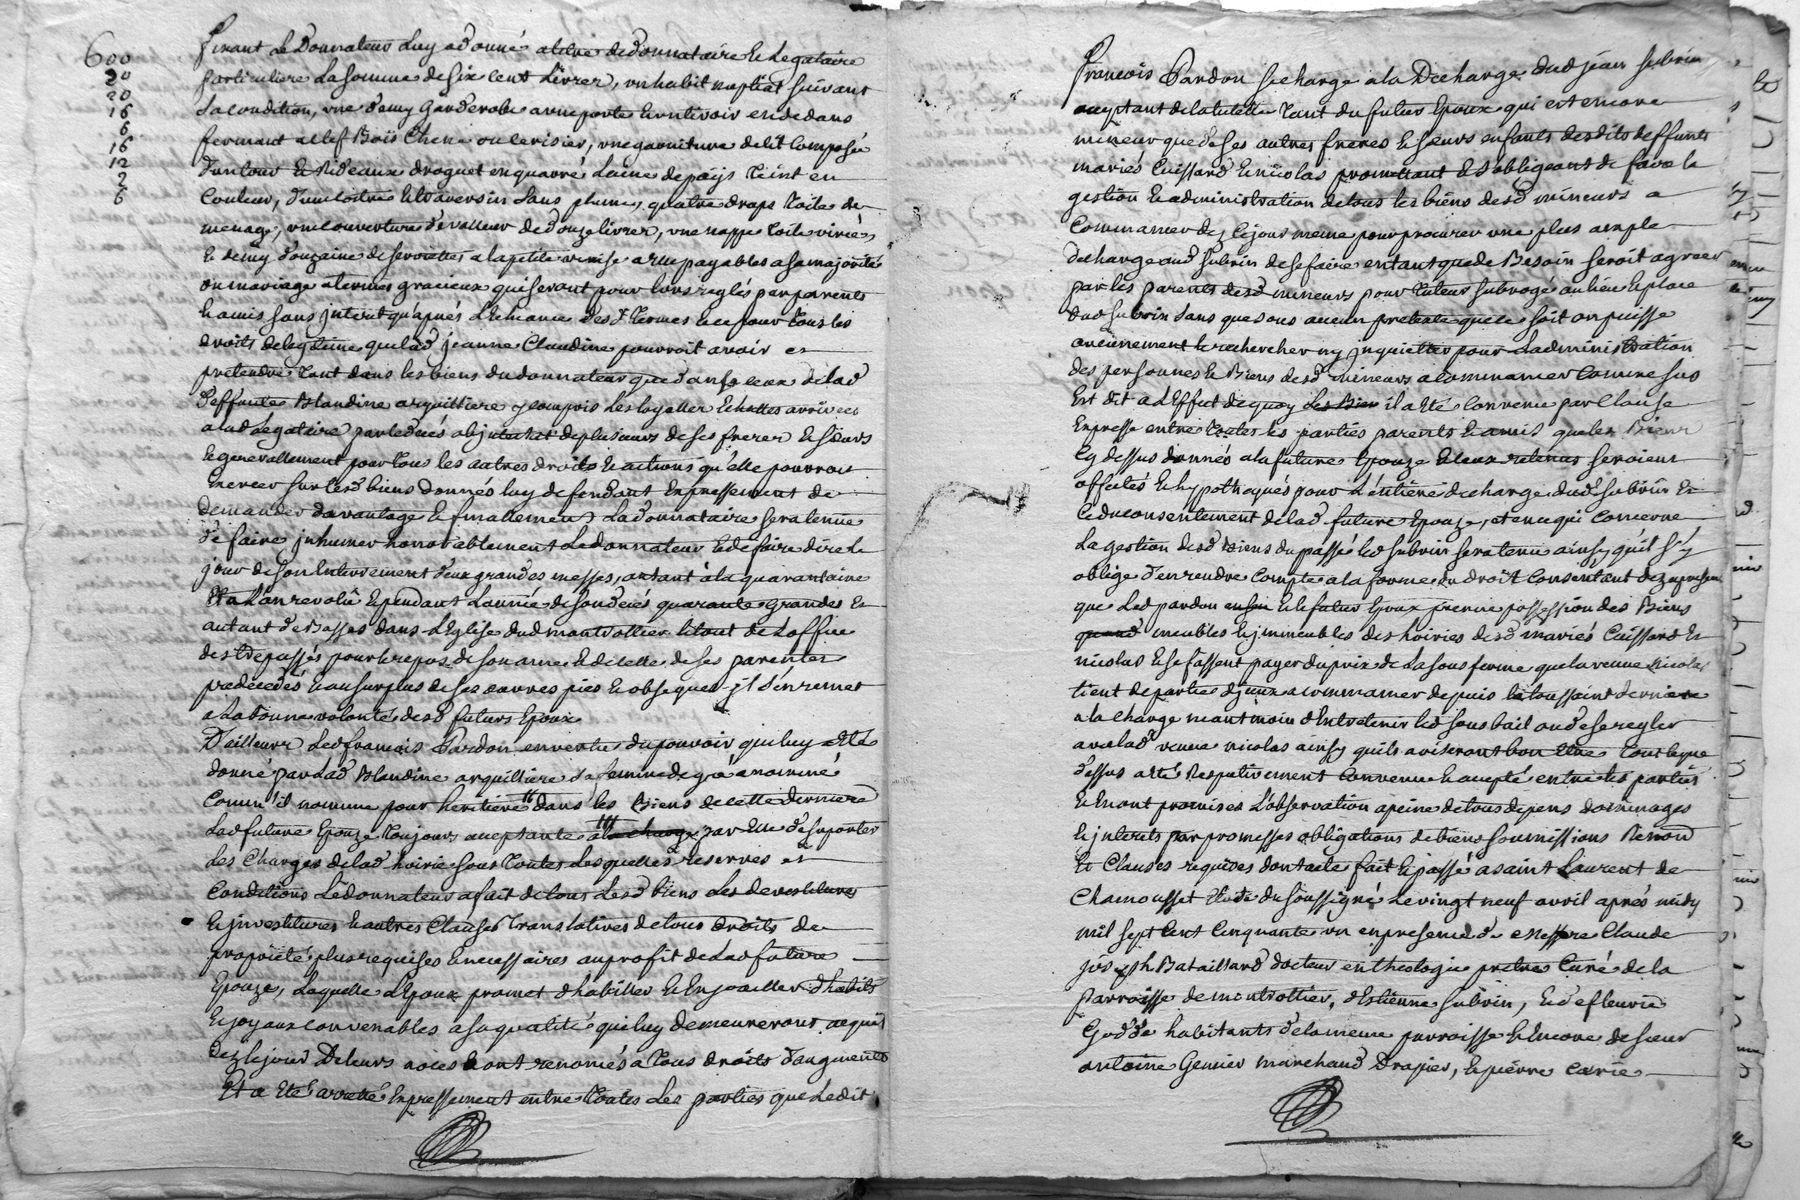 600
20
20
16
6
16
12
2
6
le Donnateur luy a donné a titre de donnataire et Legataire
particuliere La somme de six cent Livres, un habit nuptial suivant
sa condition, une demy garderobe a une porte et un tiroir en dedans
fermant a clef Bois Chene ou cerisier, une garniture de lit Composée
d'un tour de Rideaux droguet en quarré Laine de païs Teint en
Couleur, d'une Coitre et traversin sans plume, quatre draps Toile de
menage, une couverture de valleur de douze livres, une nappe Toile
et demy douzaine de serviettes a la petite venise a elle payables a sa majorité
ou mariage a termes gracieux qui seront pour lors reglés par parents
et amis sans interet qu'aprés L'Echeance des d. Termes et ce pour Tous les
droits de legitime que lad. jeanne Claudine pourroit avoir et
pretendre Tant dans les biens du donnateur que dans ceux de lad
deffunte Blandine arquilliere y compris Les Loyalles Echuttes arrivées
a lad Legataire par le decés ab intestat de plusieurs de ses freres et sœurs
et generallement pour Tous les autres droits et actions qu'elle pourroit
exercer sur lesd biens donnés luy defendant Expressement de
demander davantage et finallement La donnataire sera tenüe
de faire inhumer honnorablement Le donnateur et de faire dire Le
jour de son Enterrement deux grandes messes, autant a la quarantaine
Et a L'an revolu et pendant L'année de son decés quarante grandes et
autant de Basses dans L'Eglise dud montrottier le tout de L'office
des trepassés pour le repos de son ame et de celle de ses parentes
predecedés et au surplus de ses œuvres pies et obseques il s'en remet
a La bonne volonté desd futurs Epoux
D'ailleurs Led françois Pardon en vertu du pouvoir qui luy a eté
donné par Lad Blandine arquilliere sa femme de gré a nommé
Comm'il nomme pour heritiere dans les Biens de cette derniere
Lad future Epouze Toujours acceptante a la charge par Elle de suporter
Les Charges de lad hoirie sous Toutes Lesquelles reserves et
Conditions Le donnateur a fait de tous Lesd biens Les devestitures
et investitures et autres Clauses Translatives de tous droits de
proprieté plus requises et necessaires au profit de Lad future
Epouze, Laquelle L'Epoux promet d'habiller et Enjoailler d'habits
et joyaux convenables a sa qualité qui luy demeureront acquis
dez le jour De leurs noces et ont renoncés a Tous droits d'augment
Et a Eté arreté Expressement entre Toutes Les parties que Ledit
François Pardon se charge a la Decharge dud jean subrin
acceptant de la tutelle Tant du futur Epoux qui est encore
mineur que de ses autres freres et sœurs enfants desdits deffunts
mariés Cuissard et nicolas promettant et s'obligeant de faire la
gestion et administration de tous les biens desd mineurs a
Commancer dez ce jour meme pour procurer une plus ample
decharge aud subrin de se faire en tant que de Besoin seroit agreer
par les parents desd mineurs pour Tuteur subrogé au lieu et place
dud subrin sans que sous aucun pretexte que ce soit on puisse
aucunement le rechercher ny inquietter pour L'administration
des personnes et Biens desd mineurs a Commancer Comme sus
Est dit a L'Effet de quoy il a Eté Convenu par Clause
Expresse entre toutes les parties parents et amis que les Biens
Cy dessus donnés a la future Epouze seroient
affectés et hypothequés pour L'entiere decharge dud subrin et
ce du consentement de lad future Epouze, et en ce qui Concerne
La gestion desd Biens du passé led subrin sera tenu ainsy qu'il s'y
oblige d'en rendre Compte a la forme du droit Consentant dez a present
que Led pardon et le futur Epoux prenne possession des Biens
meubles et immeubles des hoiries desd mariés Cuissard et
nicolas et se fassent payer du prix de La sous ferme que la veuve Nicolas
tient de partie d'yceux a commancer depuis la toussaint derniere
a la charge neantmoin d'Entretenir led sous bail ou de se regler
avec lad veuve nicolas ainsy qu'ils aviseront bon Etre Tout ce que
dessus a eté Respectivement Convenu et accepté entre les parties
et En ont promises L'observation a peine de tous depens dommages
et interets par promesses obligations de biens soumissions Renon
Et Clauses requises dont acte fait et passé a saint Laurent de
Chamousset Etude du soussigné Le vingt neuf avril aprés midy
mil sept Cent Cinquante un en presence de Messire Claude
joseph Bataillard docteur en theologie pretre Curé de la
parroisse de montrottier, d'Estienne subrin, et de fleurie
habitants de la meme parroisse et Encore de sieur
antoine Genier marchand Drapier, et pierre